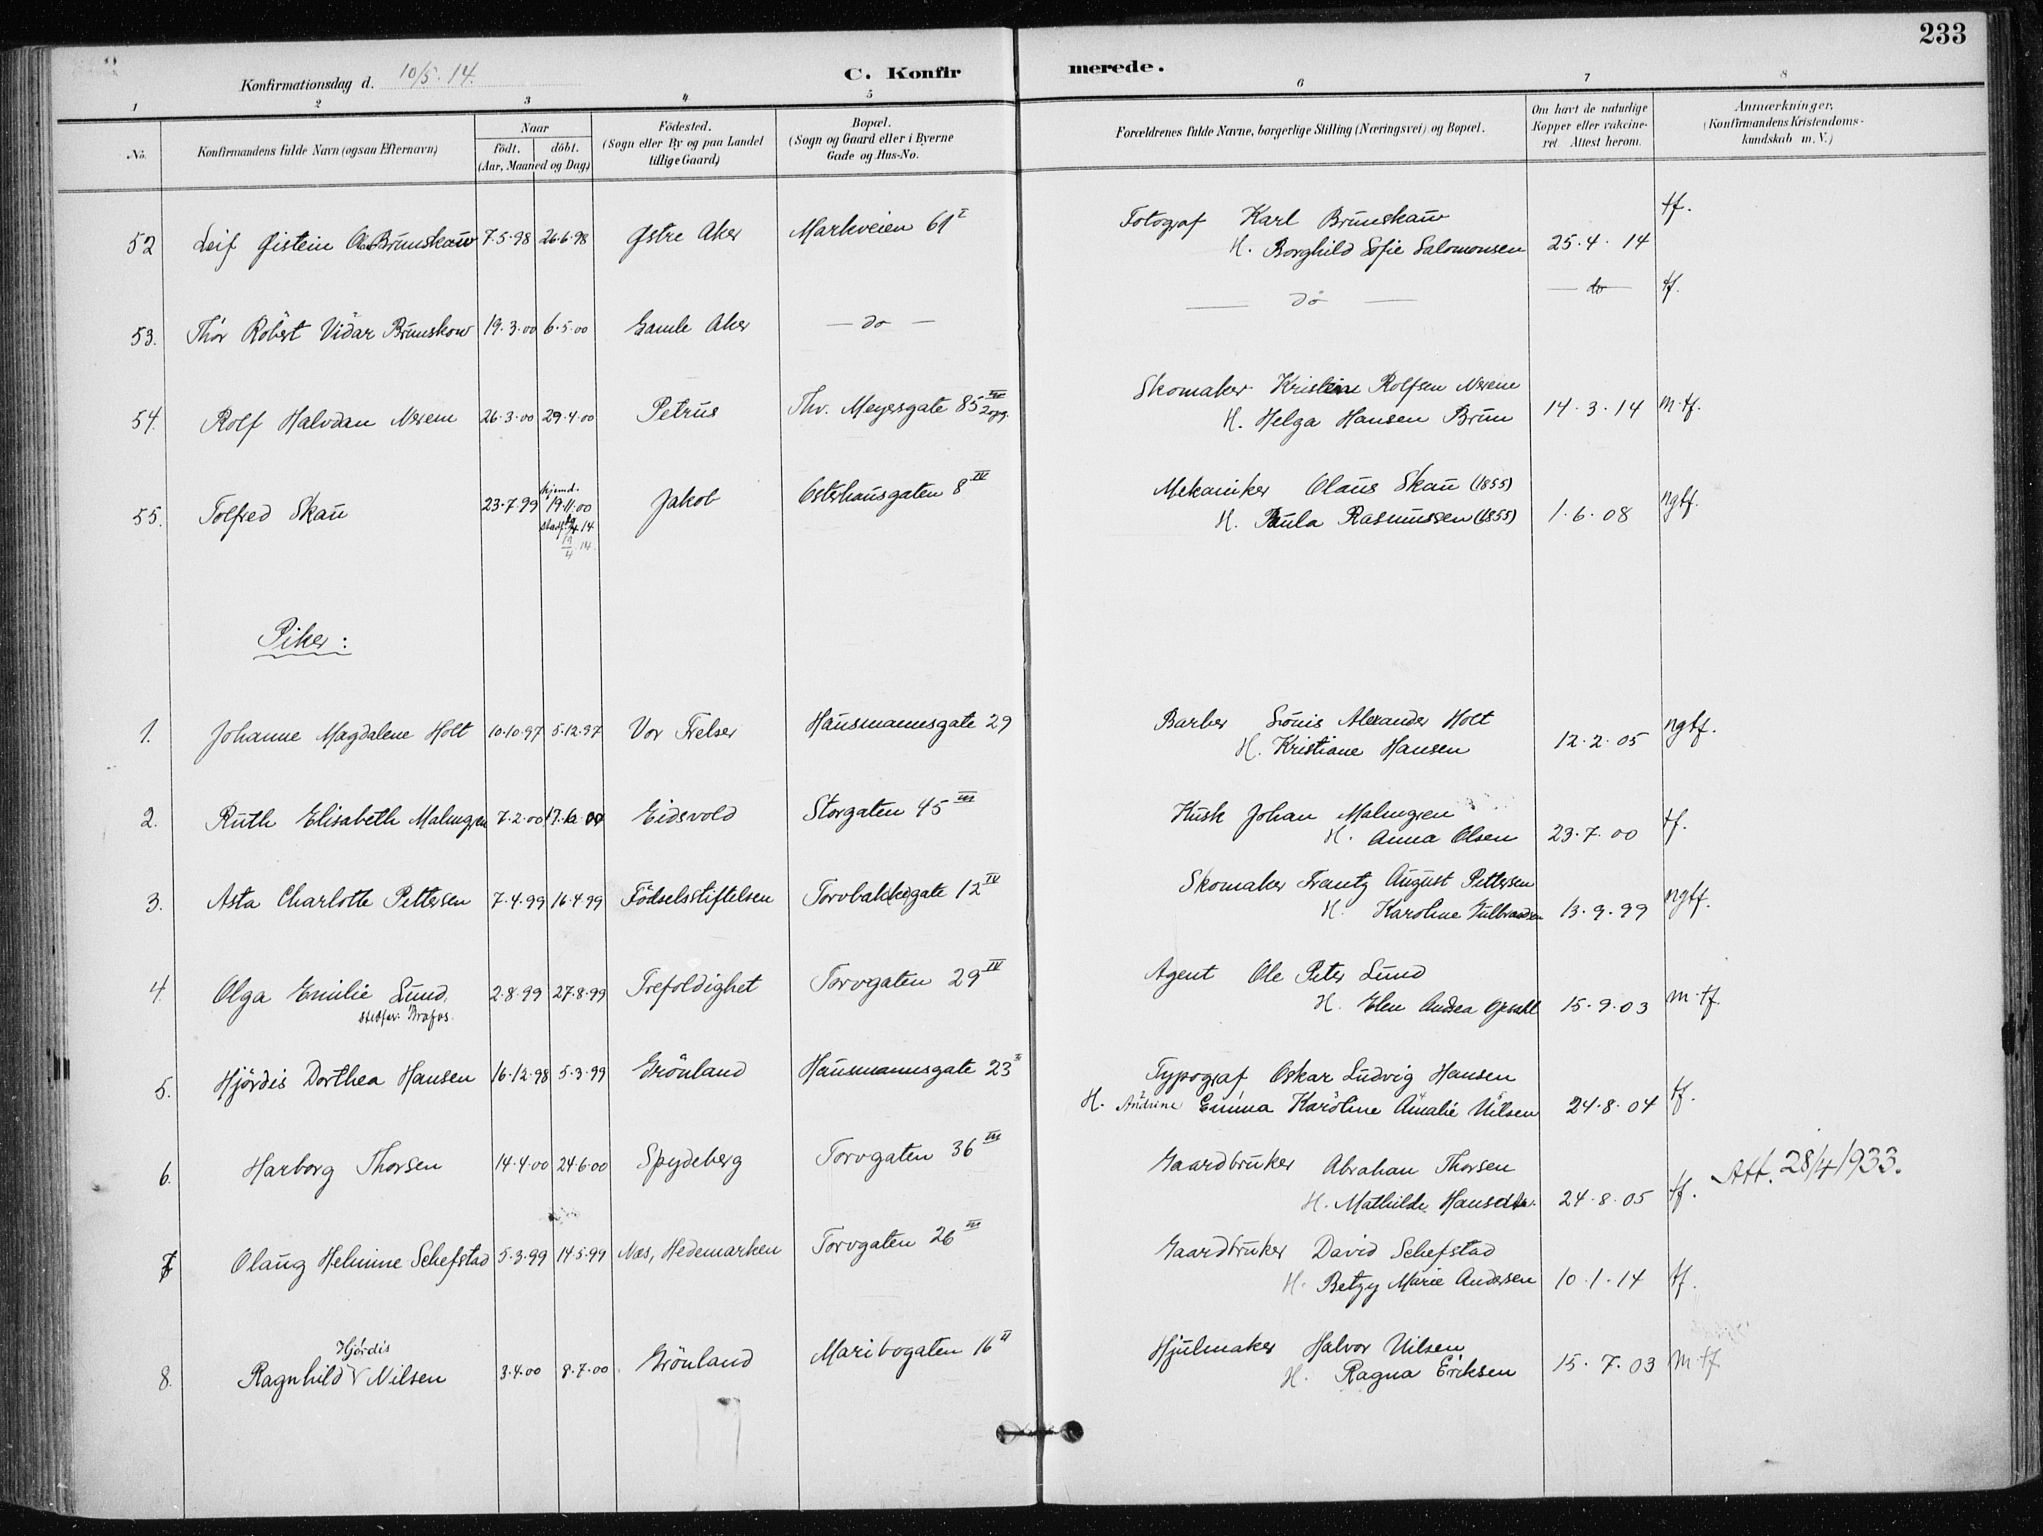 233
Konfirmationsdag d. 10/5. 14.
C. Konfirmerede.
1 2 3 4 5 6 7 8
No. Konfirmandens fulde Navn (ogsaa Efternavn) Naar födt. döbt. (Aar, Maaned og Dag) Födested. (Sogn eller By og paa Landet tillige Gaard) Bopæl. (Sogn og Gaard eller i Byerne Gade og Hus-No. Forældrenes fulde Navne, borgerlige Stilling (Næringsvei) og Bopæl. Om havt de naturlige Kopper eller vakcineret Attest herom. Anmærkninger. (Konfirmandens Kristendomskundskab m. V.)
52 Leif Øistein Brunskow 7.5.98 26.6.98 Østre Aker Markveien 61 I Fotograf Karl Brunskow tf.
H. Borghild Sofie Salomonsen 25.4.14
53. Thor Robert Vidar Brunskow 19.3.00 6.5.00 Gamle Aker — do — — do — — do — tf.
54. Rolf Halvdan Neiem 26.3.00 29.4.00 Petrus Thv. Meyersgate 85 III 2 opg. Skomaker Kristine Rolfsen
H. Helga Hansen Brun 14.3.14 m.tf.
55. Tolfred Skau 23.7.99 hjemd. 19.11.00 Jakob Osterhausgaten 8 IV Mekaniker Olaus Skau (1855)
stadf. 19/4.14. H. Paula Rasmussen (1855) 1.6.08 ngtf.
Piker:
1. Johanne Magdalene Holt 10.10.97 5.12.97 Vor Frelser Hausmannsgate 29 Barber Louis Alexander Holt
H. Kristiane Hansen 12.2.05 ngtf.
2. Ruth Elisabeth Malmgren 7.2.00 Eidsvold Storgaten 45 III Kusk Johan Malmgren
H. Anna Olsen 23.7.00 tf.
3. Asta Charlotte Pettersen 7.4.99 16.4.99 Födselsstiftelsen Torvbakkegate 12 IV Skomaker Frantz August Pettersen
H. Karoline Gulbrandsen 13.9.99 ngtf.
4. Olga Emilie Lund, 2.8.99 27.8.99 Trefoldighet Torvgaten 29 IV Agent Ole Peter Lund
H. Elen Andrea Opsahl 15.9.03 m.tf.
5. Hjördis Dorthea Hansen 16.12.98 5.3.99 Grönland Hausmannsgate 23 Typograf Oskar Ludvig Hansen
H. Andrine Emma Karoline Amalie Nilsen 24.8.04 tf.
6. Harborg Thorsen 14.4.00 24.6.00 Spydeberg Torvgaten 36 III Gaardbruker Abraham Thorsen Att. 28/4 1933.
H. Mathilde 24.8.05 tf.
7 Olaug Helmine Schefstad 5.3.99 14.5.99 Nes, Hedemarken Torvgaten 26 III Gaardbruker David Schefstad
H. Betzy Marie Andersen 10.1.14 tf.
Hjördis
8. Ragnhild Nilsen 3.4.00 8.7.00 Grönland Maribogaten 16 II Hjulmaker Halvor Nilsen
H. Ragna Eriksen 15.7.03 m.tf.